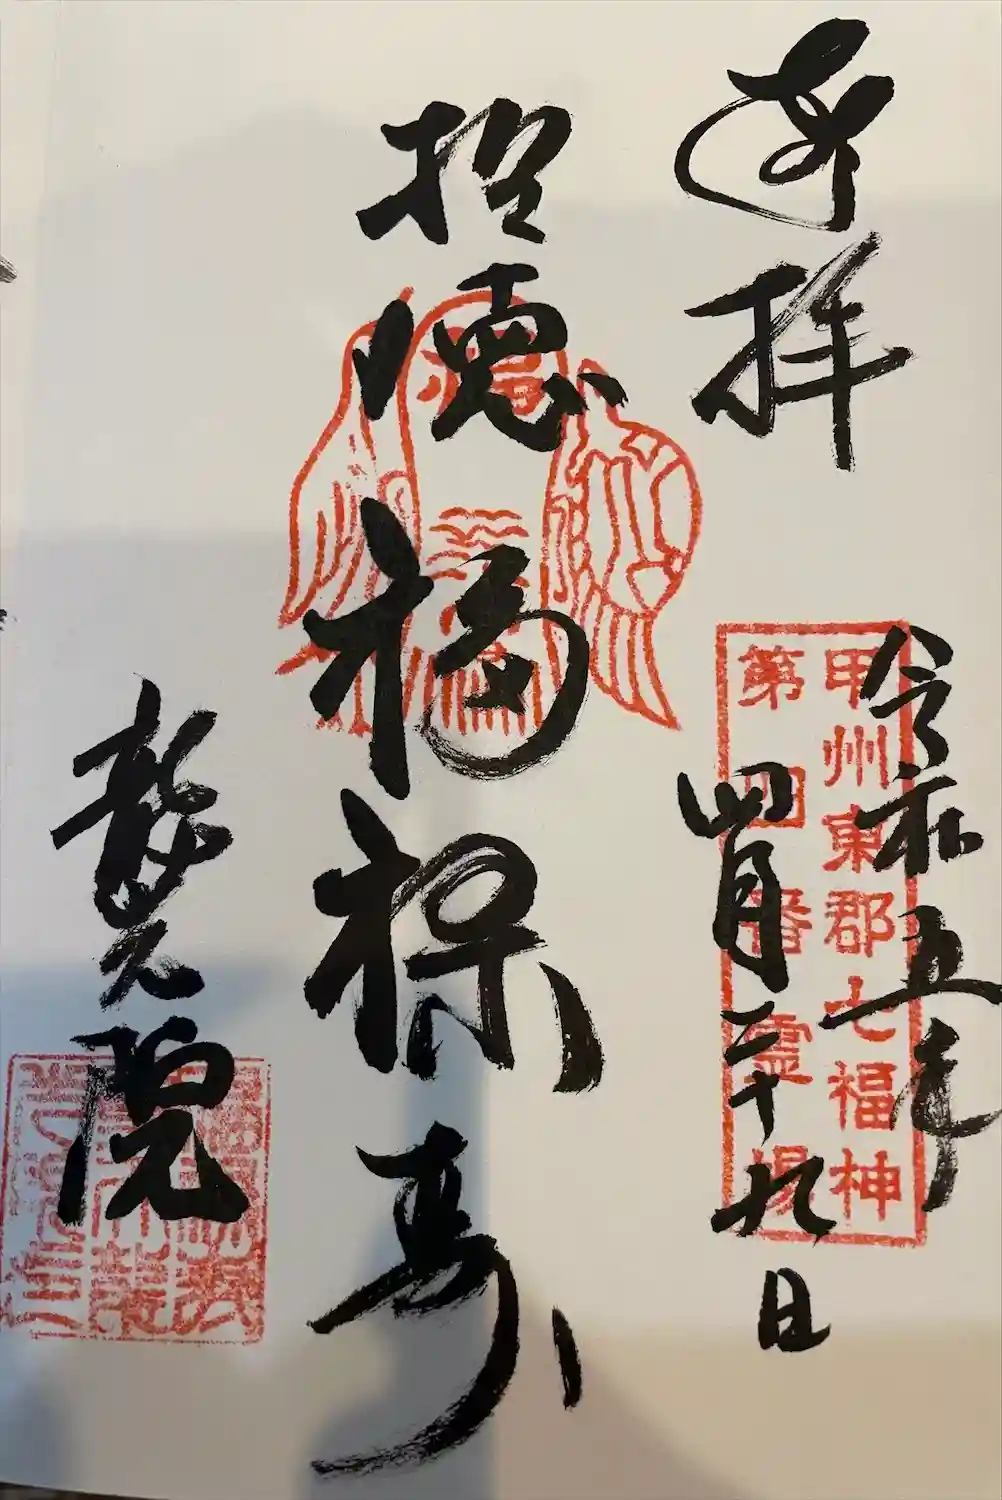 奉拝
甲州東郡七福神
第四番霊場
令和五年
四月二十九日
招徳福禄寿
龍光院